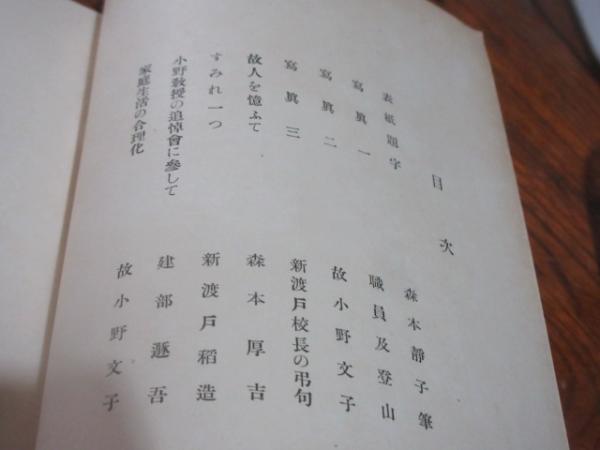 目次
表紙題字 森本靜子筆
寫眞一 職員及登山
寫眞二 故小野文子
寫眞三 新渡戸校長の弔句
故人を憶ふて 森本厚吉
すみれ一つ 新渡戸稻造
小野敎授の追悼會に參して 建部遯吾
家庭生活の合理化 故小野文子